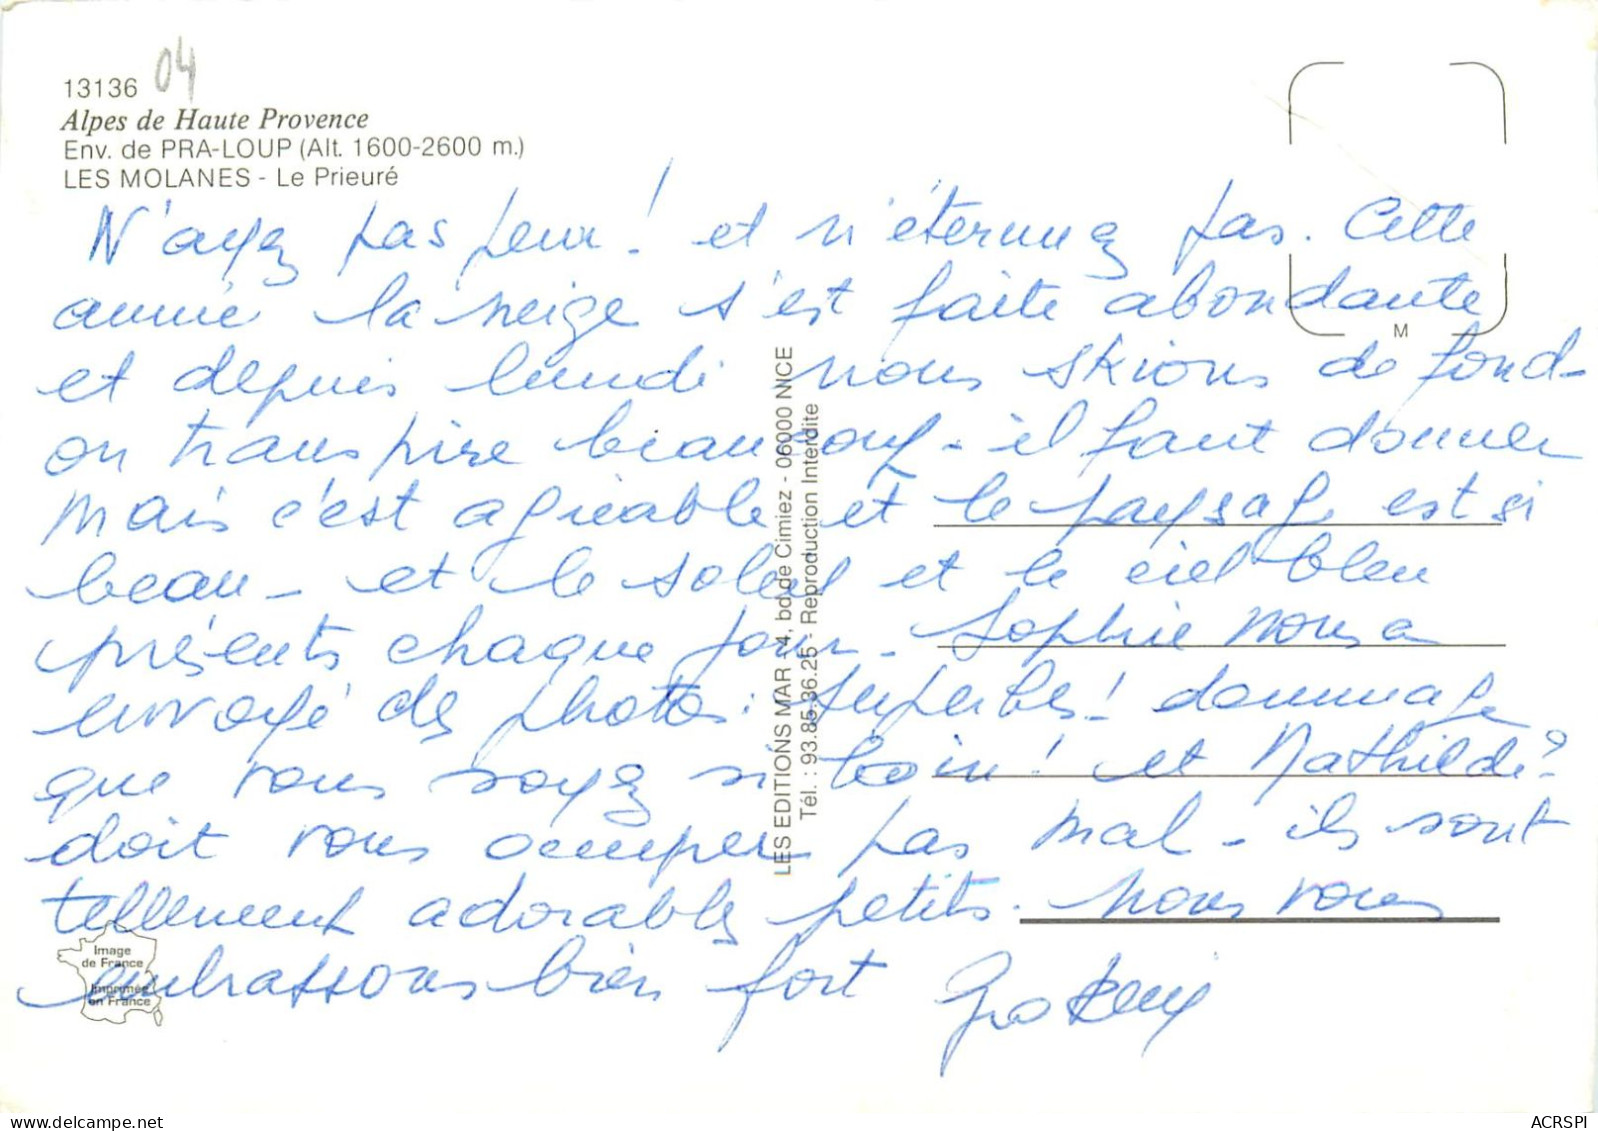 13136 04
Alpes de Haute Provence
Env. de PRA-LOUP (Alt. 1600-2600 m.)
LES MOLANES - Le Prieuré
N'ayez pas peur ! et n'éternuez pas. Cette
année la neige s'est faite abondante
et depuis lundi nous skions de fond -
on transpire beaucoup - il faut donner
mais c'est agréable et le paysage est si
beau - et le soleil et le ciel bleu
présents chaque jour - Sophie nous a
envoyé des photos : superbes ! dommage
que vous soyez si loin ! et Mathilde ?
doit vous occuper pas mal - ils sont
tellement adorables petits. Nous vous
embrassons bien fort
M
LES EDITIONS MAR - 4, bd de Cimiez - 06000 NICE
Tél. : 93.85.36.25 - Reproduction Interdite
Image
de France
Imprimée
en France
ACRSPI